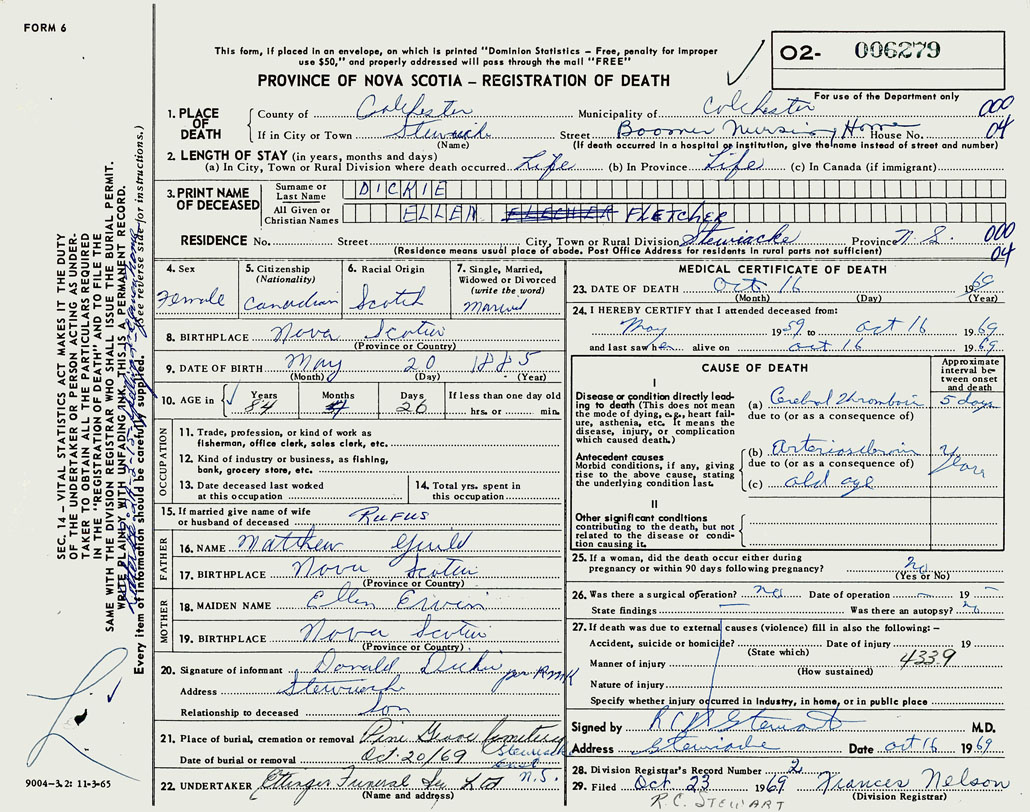 FORM 6
This form, if placed in an envelope, on which is printed "Dominion Statistics – Free, penalty for improper
use $50," and properly addressed will pass through the mail "FREE"
O2- 006279
PROVINCE OF NOVA SCOTIA – REGISTRATION OF DEATH
For use of the Department only
1. PLACE OF DEATH County of Colchester Municipality of Colchester 000
If in City or Town Stewiack Street Boomer Nursing Home House No. 04
(Name) (If death occurred in a hospital or institution, give the name instead of street and number)
2. LENGTH OF STAY (in years, months and days)
(a) In City, Town or Rural Division where death occurred Life (b) In Province Life (c) In Canada (if immigrant)
3. PRINT NAME OF DECEASED Surname or Last Name DICKIE
All Given or Christian Names ELLEN FLETCHER
RESIDENCE No. Street City, Town or Rural Division Stewiacke Province N. S. 000
(Residence means usual place of abode. Post Office Address for residents in rural parts not sufficient) 04
4. Sex Female
5. Citizenship (Nationality) Canadian
6. Racial Origin Scotch
7. Single, Married, Widowed or Divorced (write the word) Married
8. BIRTHPLACE Nova Scotia
(Province or Country)
9. DATE OF BIRTH May 20 1885
(Month) (Day) (Year)
10. AGE in Years 84 Months Days 26 If less than one day old hrs. or min.
OCCUPATION
11. Trade, profession, or kind of work as
fisherman, office clerk, sales clerk, etc.
12. Kind of industry or business, as fishing,
bank, grocery store, etc.
13. Date deceased last worked
at this occupation
14. Total yrs. spent in
this occupation
15. If married give name of wife
or husband of deceased RUFUS
FATHER
16. NAME Matthew Guild
17. BIRTHPLACE Nova Scotia
(Province or Country)
MOTHER
18. MAIDEN NAME Ellen Erwin
19. BIRTHPLACE Nova Scotia
(Province or Country)
20. Signature of informant Donald Dickie per RMK
Address Stewiacke
Relationship to deceased Son
21. Place of burial, cremation or removal Pine Grove Cemetery
Stewiacke East N.S.
Date of burial or removal Oct. 20/69
22. UNDERTAKER Ettinger Funeral Ltd
(Name and address)
MEDICAL CERTIFICATE OF DEATH
23. DATE OF DEATH Oct 16 1969
(Month) (Day) (Year)
24. I HEREBY CERTIFY that I attended deceased from:
May 1959 to Oct 16 1969
and last saw her alive on Oct 16 1969
CAUSE OF DEATH
Approximate interval between onset and death
I
Disease or condition directly leading to death (This does not mean the mode of dying, e.g., heart failure, asthenia, etc. It means the disease, injury, or complication which caused death.)
(a) Cerebral Thrombosis 5 days
due to (or as a consequence of)
Antecedent causes
Morbid conditions, if any, giving rise to the above cause, stating the underlying condition last.
(b) Arteriosclerosis years
due to (or as a consequence of)
(c) old age
II
Other significant conditions
contributing to the death, but not related to the disease or condition causing it.
25. If a woman, did the death occur either during
pregnancy or within 90 days following pregnancy? no
(Yes or No)
26. Was there a surgical operation? no Date of operation – 19 –
State findings — Was there an autopsy? no
27. If death was due to external causes (violence) fill in also the following: –
Accident, suicide or homicide? Date of injury 19
(State which)
Manner of injury 4339
(How sustained)
Nature of injury
Specify whether injury occurred in Industry, in home, or in public place
Signed by R C Stewart M.D.
Address Stewiacke Date Oct 16 1969
28. Division Registrar's Record Number 2
29. Filed Oct. 23 1969 Frances Nelson
(Division Registrar)
R.C. STEWART
SEC. 14 – VITAL STATISTICS ACT MAKES IT THE DUTY
OF THE UNDERTAKER OR PERSON ACTING AS UNDER-
TAKER TO OBTAIN ALL THE PARTICULARS REQUIRED
IN THE "REGISTRATION OF DEATH" AND TO FILE THE
SAME WITH THE DIVISION REGISTRAR WHO SHALL ISSUE THE BURIAL PERMIT.
WRITE PLAINLY WITH UNFADING INK, THIS IS A PERMANENT RECORD.
Every item of information should be carefully supplied. (See reverse side for instructions.)
9004-3.2: 11-3-65